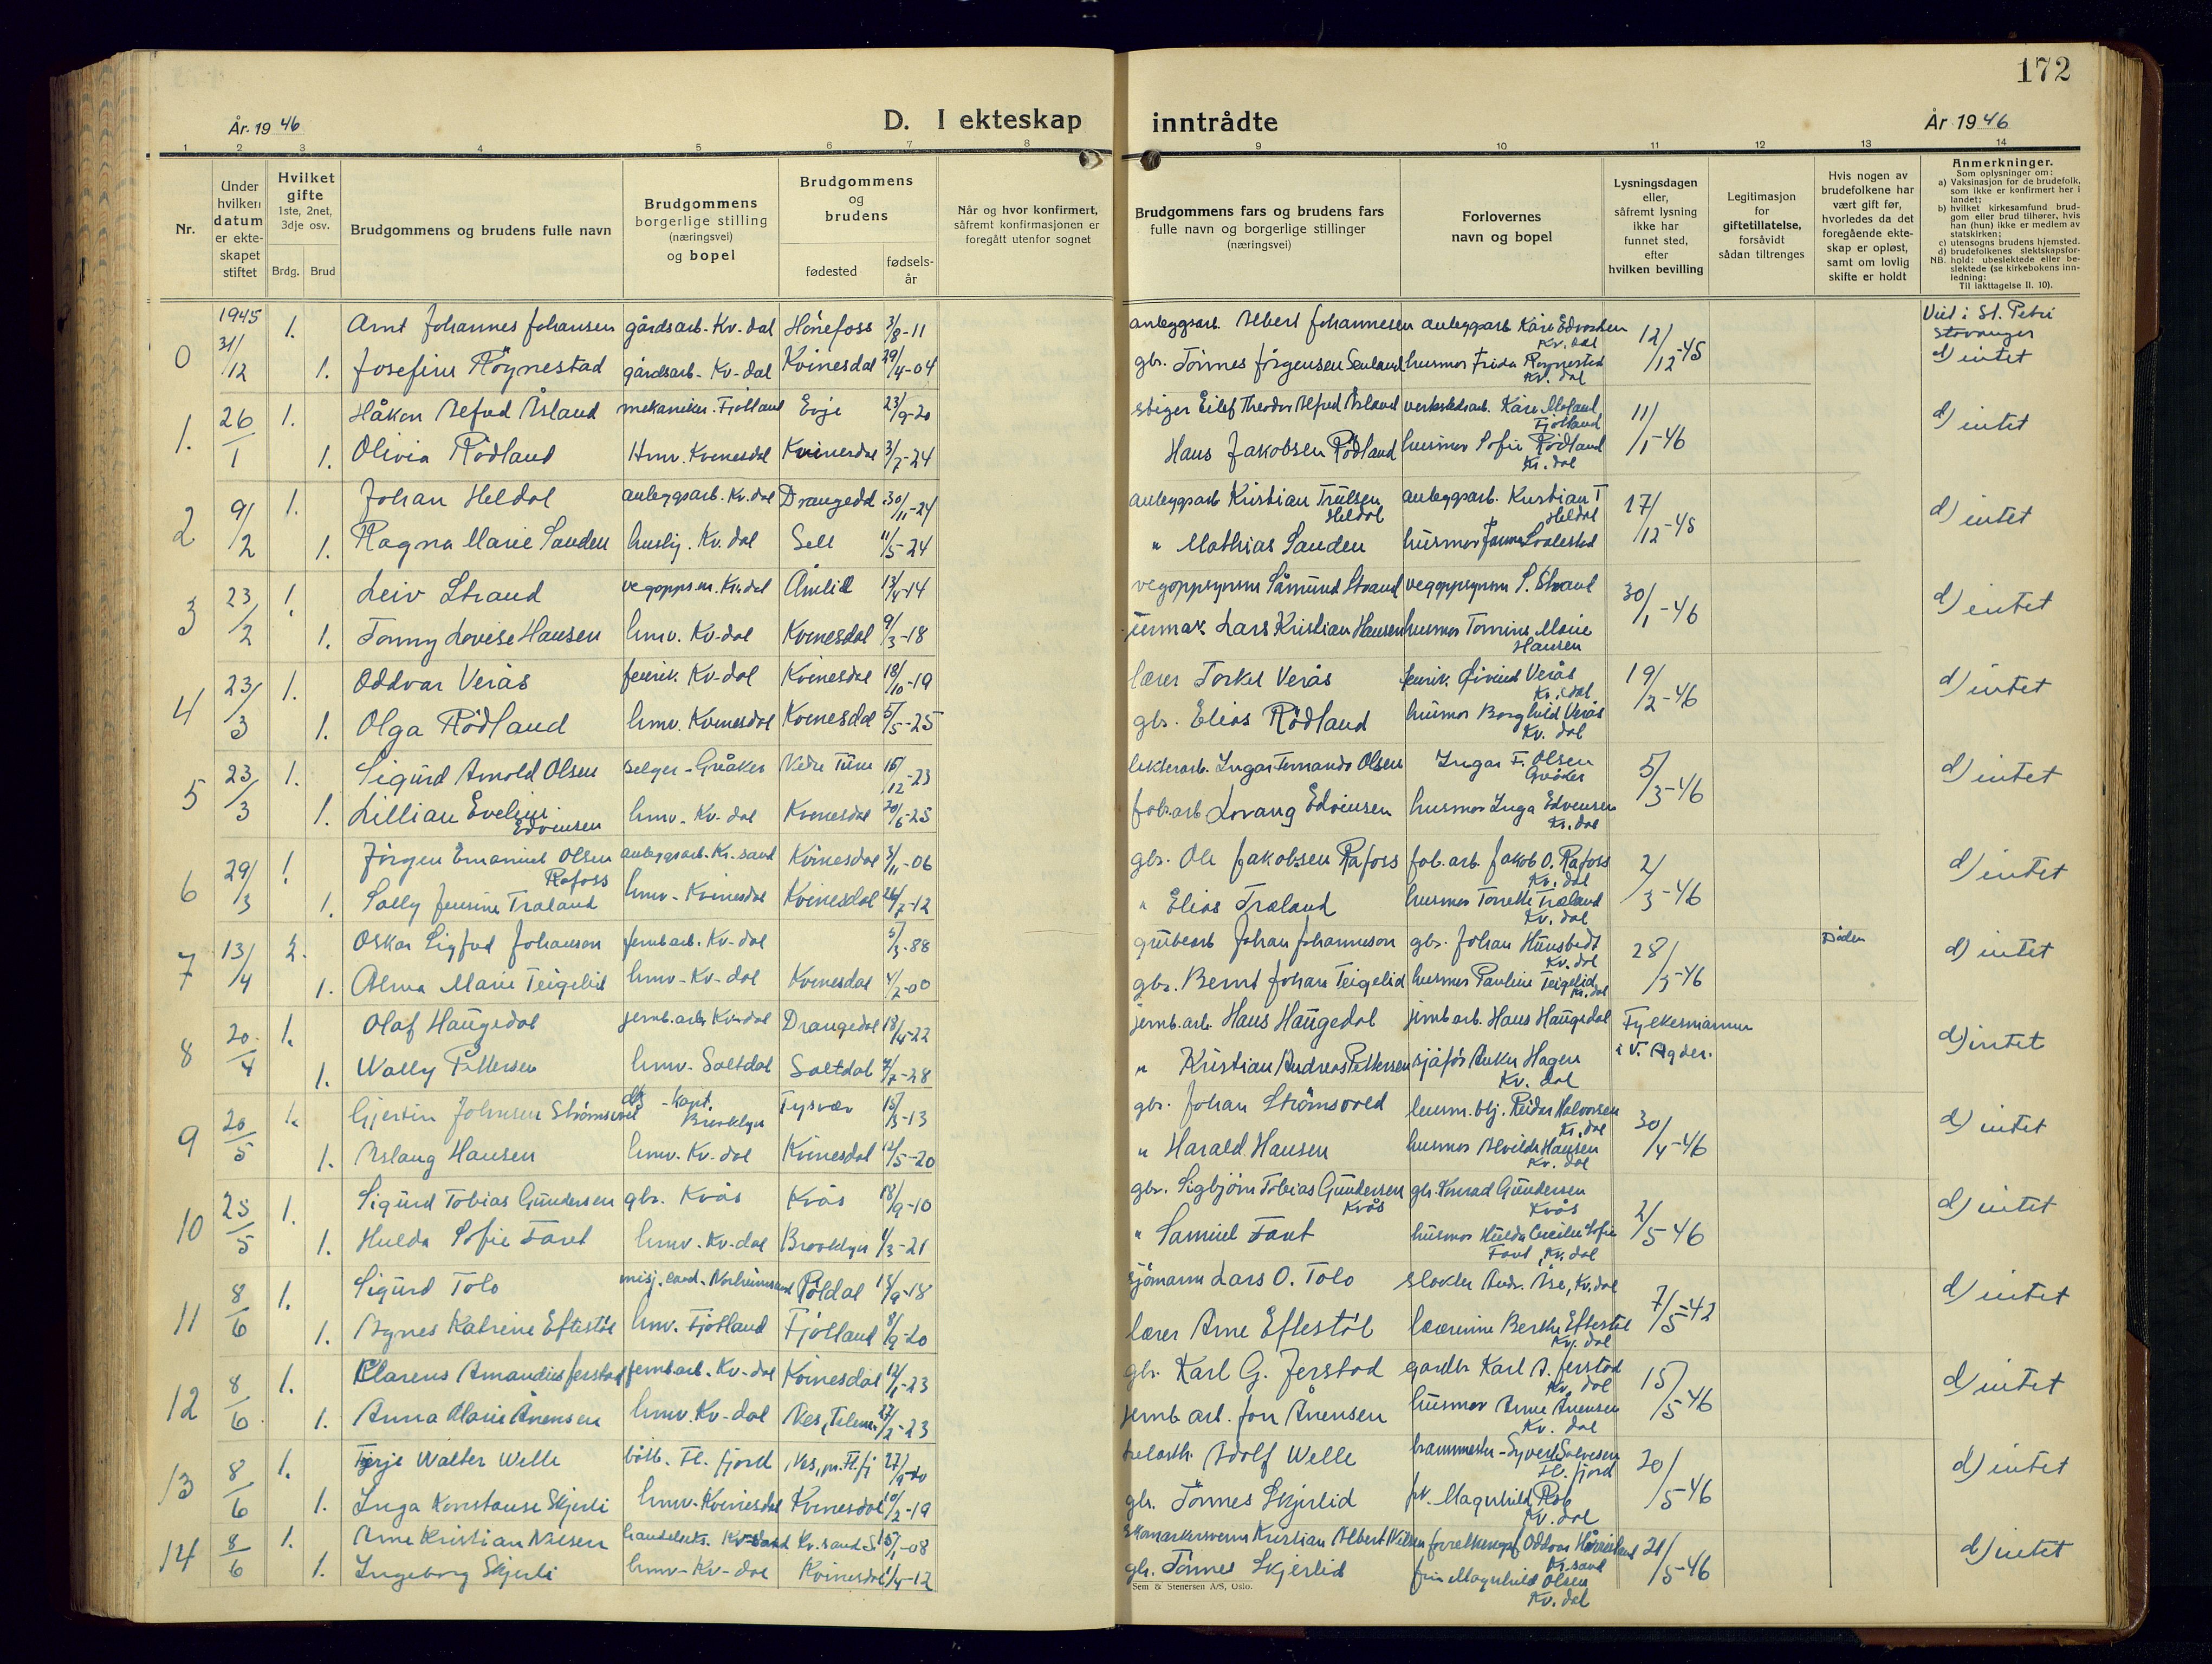 172
År. 1946
D. I ekteskap inntrådte
År 1946
1 2 3 4 5 6 7 8 9 10 11 12 13 14
Nr.
Under hvilken datum er ekteskapet stiftet
Hvilket gifte 1ste, 2net, 3dje osv.
Brdg. Brud
Brudgommens og brudens fulle navn
Brudgommens borgerlige stilling (næringsvei) og bopel
Brudgommens og brudens
fødested
fødselsår
Når og hvor konfirmert, såfremt konfirmasjonen er foregått utenfor sognet
Brudgommens fars og brudens fars fulle navn og borgerlige stillinger (næringsvei)
Forlovernes navn og bopel
Lysningsdagen eller, såfremt lysning ikke har funnet sted, efter hvilken bevilling
Legitimasjon for giftetillatelse, forsåvidt sådan tiltrenges
Hvis nogen av brudefolkene har vært gift før, hvorledes da det foregående ekteskap er opløst, samt om lovlig skifte er holdt
Anmerkninger.
Som oplysninger om:
a) Vaksinasjon for de brudefolk, som ikke er konfirmert her i landet;
b) hvilket kirkesamfund brudgom eller brud tilhører, hvis han (hun) ikke er medlem av statskirken;
c) utensogns brudens hjemsted.
d) brudefolkenes slektskapsforhold: ubeslektede eller beslektede (se kirkebokens innledning:
NB.
Til iakttagelse II. 10).
0 1945 31/12 1. Arnt Johannes Johansen gårdsarb. Kv. dal Hönefoss 3/8-11 anleggsarb. Albert Johannesen anleggsarb Kåre Edvardsen Kv. dal 12/12-45 Viet i St. Petri Stavanger
1. Josefine Röynestad gårdsarb - Kv-dal Kvinesdal 29/4-04 gbr. Tönnes Jörgensen husmor Frida Röynestad Kv. dal d) intet
1. 26/1 1. Håkon Alfred Åsland mekaniker. Fjotland Evje 23/9-20 stiger Eilef Theodor Alfred Åsland verkstedarb. Kåre Fjotland 11/1-46 d) intet
1. Olivia Rödland Hmv. Kvinesdal Kvinesdal 3/7-24 Hans Jakobsen Rödland husmor Sofie Rödland Kv. dal
2 9/2 1. Johan Heldal anleggsarb. Kv. dal Drangedal 30/11-24 anleggsarb Kristian Trulsen Heldal anleggsarb. Kristian T Heldal 17/12-45 d) intet
1. Ragna Marie Sanden huslj. Kv. dal Sell 11/5-24 " Mathias Sanden husmor
3 23/2 1. Leiv Strand vegoppsm. Kv. dal Åmlid 13/4-14 vegoppsynsm Såmund Strand vegoppsynsm S. Strand 30/1-46 d) intet
1. Tonny Lovise Hansen hmv. Kv-dal Kvinesdal 9/3-18 Lars Kristian Hansen husmor Tomine Marie Hansen
4 23/3 1. Oddvar Verås fenrik. Kv-dal Kvinesdal 18/10-19 lærer Torkel Verås fenrik. Øivind Verås Kv. dal 19/2-46 d) intet
1. Olga Rödland hmv. Kvinesdal Kvinesdal 5/5-25 gbr. Elias Rödland husmor Borghild Verås Kv. dal
5 23/3 1. Sigurd Arnold Olsen selger - Gråker Nedre Tune 16/12-23 Ingar Fernando Olsen Ingar F. Olsen Gråker 5/3-46 d) intet
1. Lillian Eveline Edvinsen hmv. Kv-dal Kvinesdal 20/6-25 fab.arb Lovang Edvinsen husmor Inga Edvinsen Kv. dal
6 29/3 1. Jörgen Emanuel Olsen Rafoss anleggsarb. Kr. sand Kvinesdal 3/11-06 gbr. Ole Jakobsen Rafoss fab. arb. Jakob O. Rafoss Kv. dal 2/3-46 d) intet
1. Sally Jensine Træland hmv - Kvinesdal Kvinesdal 26/7-12 " Elias Træland husmor Tonette Træland Kv. dal
7 13/4 2. Oskar Sigfred Johanson jernb.arb. Kv-dal 5/3-88 grubearb Johan Johanneson gbr. Johan Hunsbedt Kv. dal 28/3-46 Döden d) intet
1. Alma Marie Teigelid hmv-Kv-dal Kvinesdal 4/2-00 gbr. Bernt Johan Teigelid husmor Pauline Teigelid Kv. dal
8 20/4 1. Olaf Haugedal jernb.arb Kv-dal Drangedal 18/4-22 jernb. arb. Hans Haugedal jernb arb. Hans Haugedal Fylkesmannen i V. Agder. d) intet
1. Wally Pettersen hmv. Saltdal Saltdal 7/7-28 " Kristian Andreas Pettersen sjåför Anker Hagen Kv. dal
9 20/5 1. Gjertin Johnsen Strömsvold - kapt. Brooklyn Tysvær 15/3-13 gbr. Johan Strömsvold Reidar Halvorsen Kv. dal 30/4-46 d) intet
1. Aslaug Hansen hmv. Kv-dal Kvinesdal 12/5-20 " Harald Hansen husmor Alvilde Hansen Kv. dal
10 25/5 1. Sigurd Tobias Gundersen gbr. Kvås Kvås 18/9-10 gbr. Sigbjörn Tobias Gundersen Kvås gbr. Konrad Gundersen Kvås 2/5-46 d) intet
1. Hulda Sofie Faret hmv. Kv-dal Brooklyn 4/3-21 " Samuel Faret husmor Hulda Cecilie Sofie Faret, Kv. dal
11 8/6 1. Sigurd Tolo misj. cand. Norheimsund Röldal 15/9-18 sjömann Lars O. Tolo slakter Andr. Åse, Kv. dal 7/5-42 d) intet
1. Agnes Katrine Eftestöl hmv. Fjotland Fjotland 8/9-20 lærer Arne Eftestöl lærerinne Berthe Eftestöl Kv. dal
12 8/6 1. Klarens Amandius Jerstad jernb.arb. Kv-dal Kvinesdal 12/1-23 gbr. Karl G. Jerstad gardbr Karl A. Jerstad Kv. dal 15/5-46 d) intet
1. Anna Marie Ånensen hmv. Kv-dal Nes, Telem. 27/2-23 jernb arb. Jon Ånensen husmor Anne Ånensen Kv. dal
13 8/6 1. Terje Walter Welle båtb. Fl. fjord Nes, pr. Fl. fj 27/9-20 Adolf Welle Syvert Salvesen Fl. fjord 20/5-46 d) intet
1. Inga Konstanse Skjerli hmv-Kvinesdal Kvinesdal 10/2-19 gbr. Tönnes Skjerlid frk. Magnhild Kv. dal
14 8/6 1. Arne Kristian Nilsen Kr-sand Kr. sand S 15/1-08 Kristian Albert Nilsen Oddvar Kr. sand 21/5-46 d) intet
1. Ingeborg Skjerli hmv-Kv-dal Kvinesdal 1/4-12 gbr. Tönnes Skjerlid fru Magnhild Olsen Kv. dal
Sem & Stenersen A/S, Oslo.